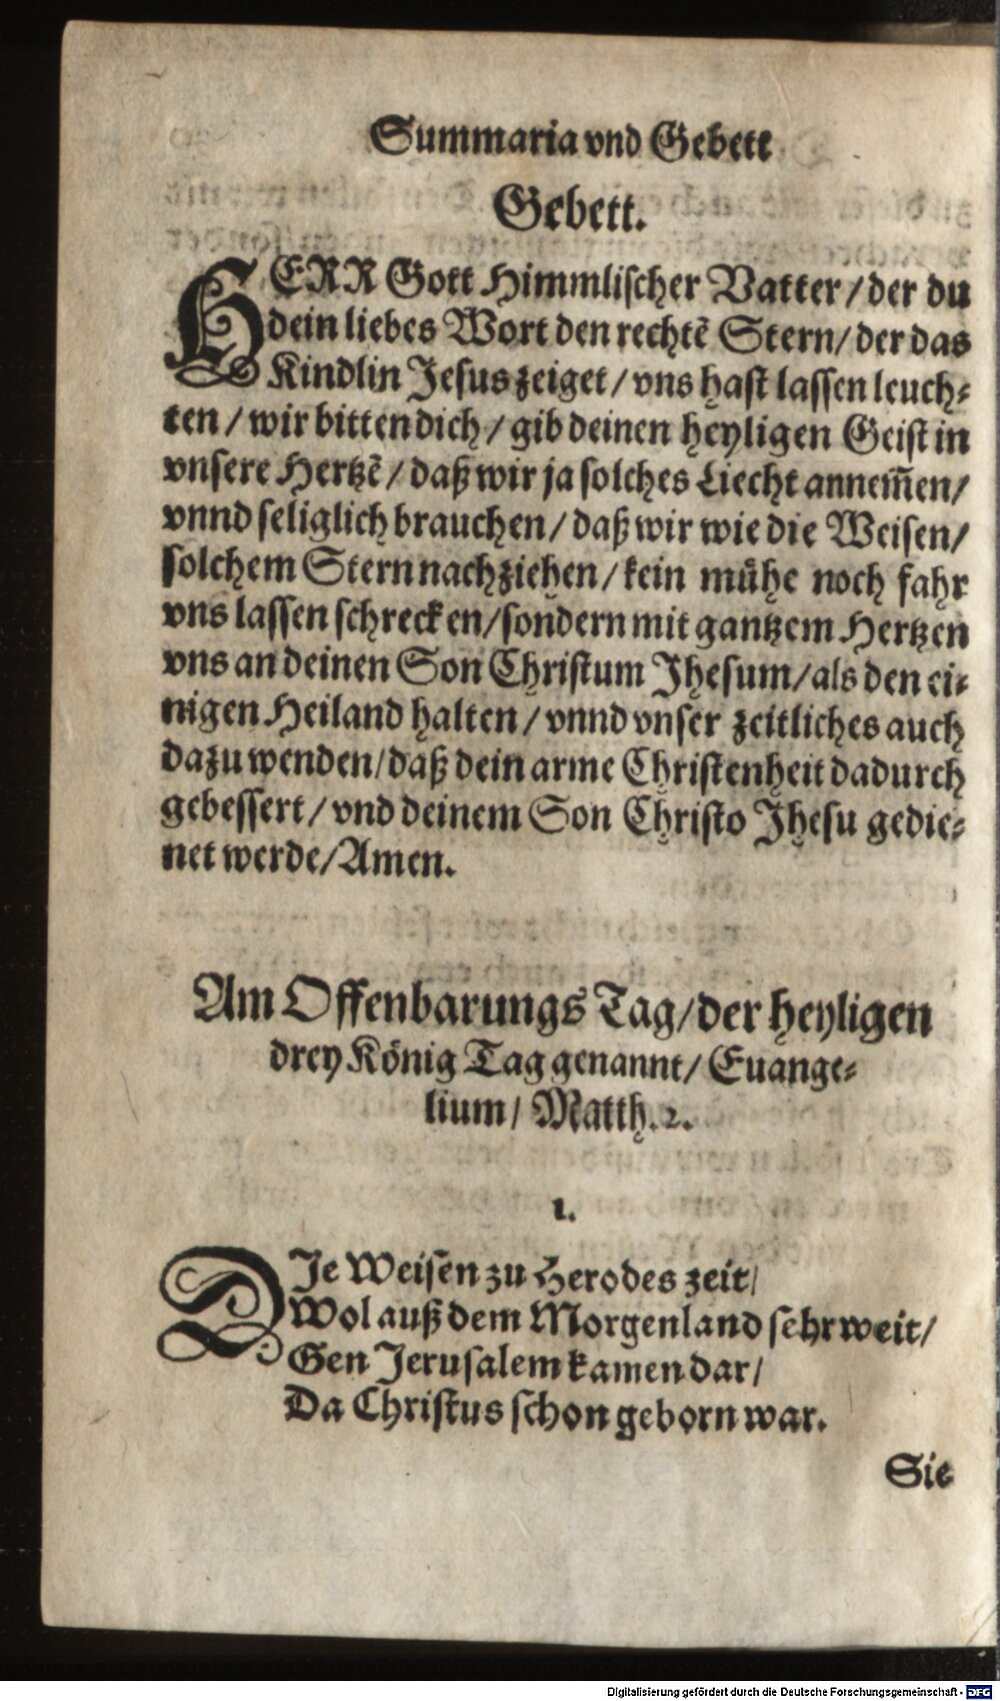 Summaria vnd Gebett
Gebett.
HERR Gott Himmlischer Vatter / der du
dein liebes Wort den rechtẽ Stern / der das
Kindlin Jesus zeiget / vns hast lassen leuch-
ten / wir bitten dich / gib deinen heyligen Geist in
vnsere Hertzẽ / daß wir ja solches Liecht annem̃en /
vnnd seliglich brauchen / daß wir wie die Weisen /
solchem Stern nachziehen / kein mühe noch fahr
vns lassen schrecken / sondern mit gantzem Hertzen
vns an deinen Son Christum Jhesum / als den ei-
nigen Heiland halten / vnnd vnser zeitliches auch
dazu wenden / daß dein arme Christenheit dadurch
gebessert / vnd deinem Son Christo Jhesu gedie-
net werde / Amen.
Am Offenbarungs Tag / der heyligen
drey König Tag genannt / Euange-
lium / Matth. 2.
1.
DJe Weisen zu Herodes zeit /
Wol auß dem Morgenland sehr weit /
Gen Jerusalem kamen dar /
Da Christus schon geborn war.
Sie
Digitalisierung gefördert durch die Deutsche Forschungsgemeinschaft - DFG